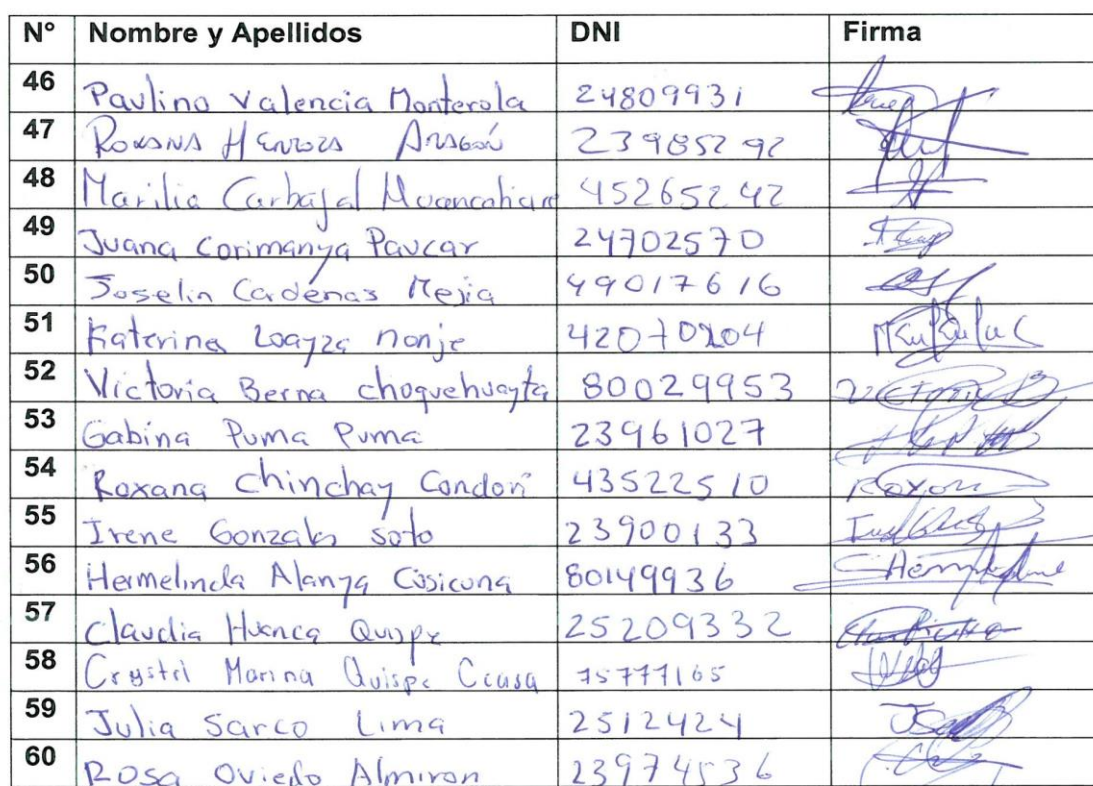 N° Nombre y Apellidos DNI Firma
46 Paulino Valencia Monterola 24809931
47 Roxana Henroza Aragón 23985292
48 Marilia Carbajal Huancahuire 45265242
49 Juana Corimanya Paucar 24702570
50 Joselin Cardenas Mejia 49017616
51 Katerine Loayza Monje 42070204
52 Victoria Berna choquehuayta 80029953
53 Gabina Puma Puma 23961027
54 Roxana Chinchay Condori 43522510
55 Irene Gonzales Soto 23900133
56 Hermelinda Alanya Cusicuna 80149936
57 Claudia Huanca Quispe 25209332
58 Crystel Marina Quispe Ccasa 75777165
59 Julia Sarco Lima 2512424
60 Rosa Oviedo Almiron 23974536